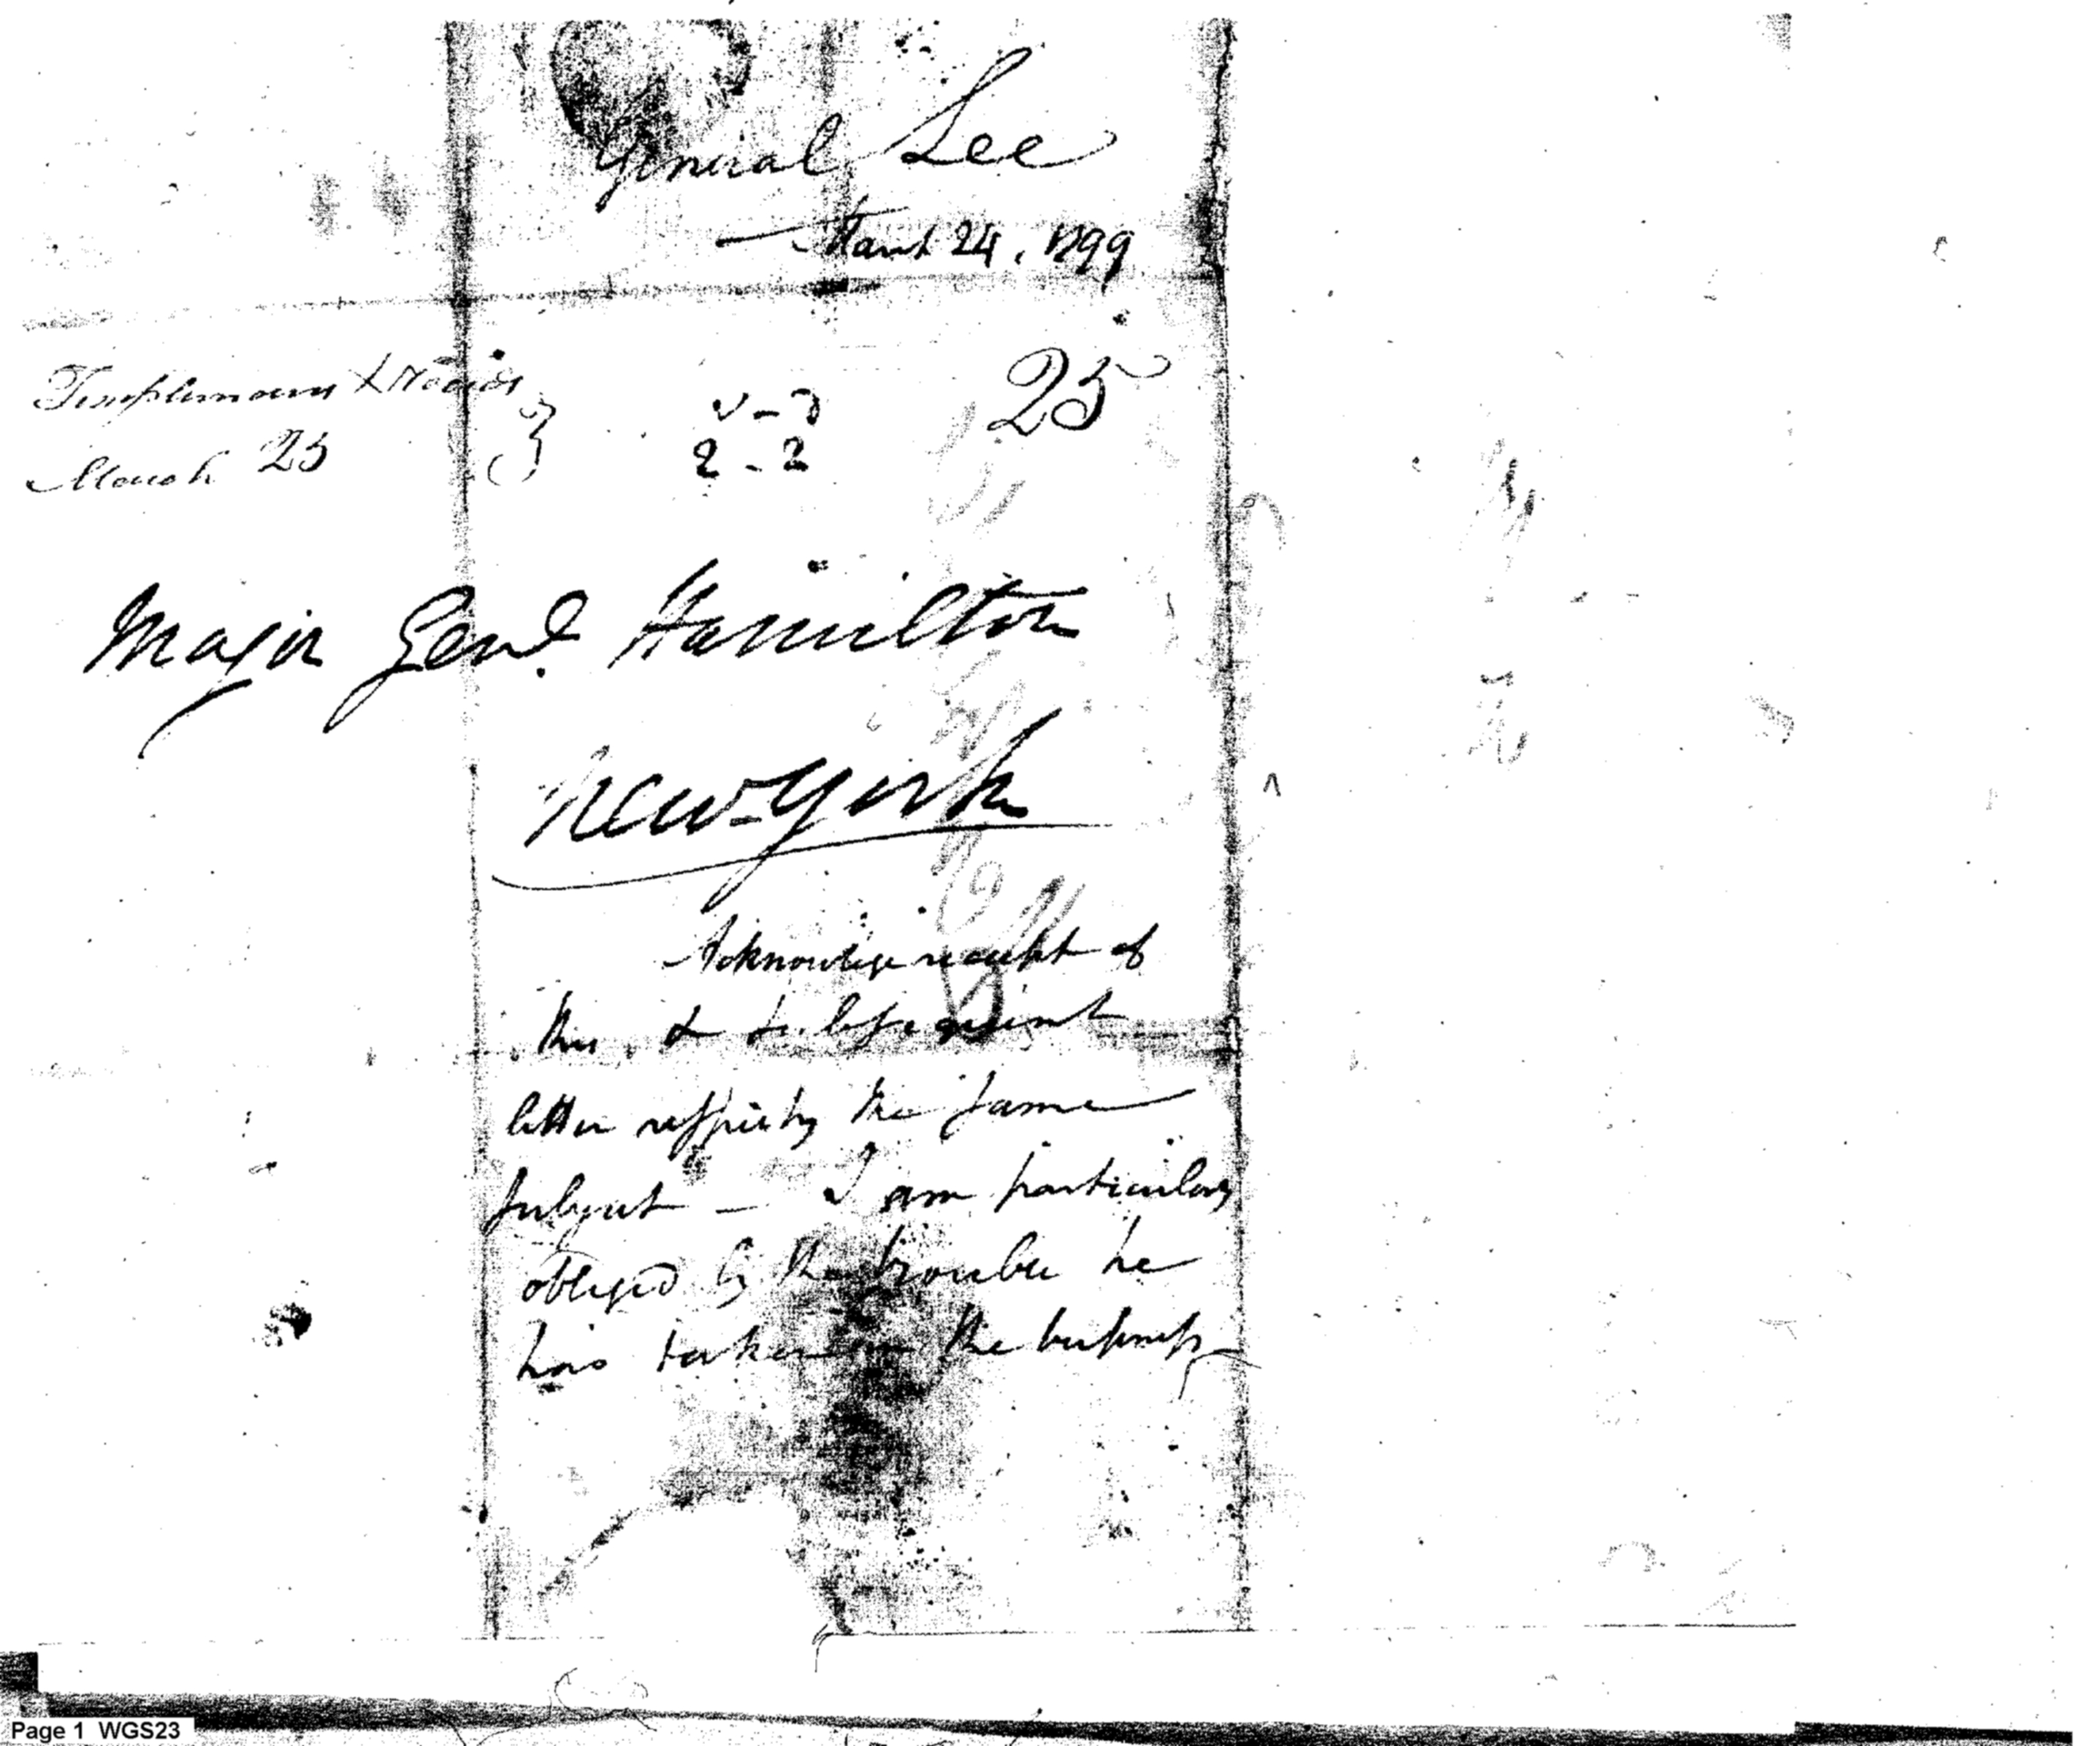 General Lee
March 24, 1799
25
March 25
2 - 2
Major Genl. Hamilton
New-York
Acknowlege receipt of
this, & subsequent
letter respecting the same
subject — I am particularly
obliged by the trouble he
has taken in the business
Page 1 WGS23